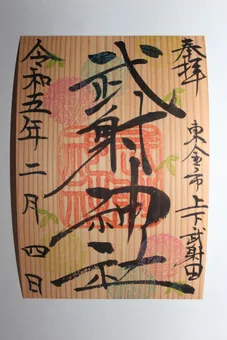 奉拝
東金市上武射田
武射神社
令和五年二月四日